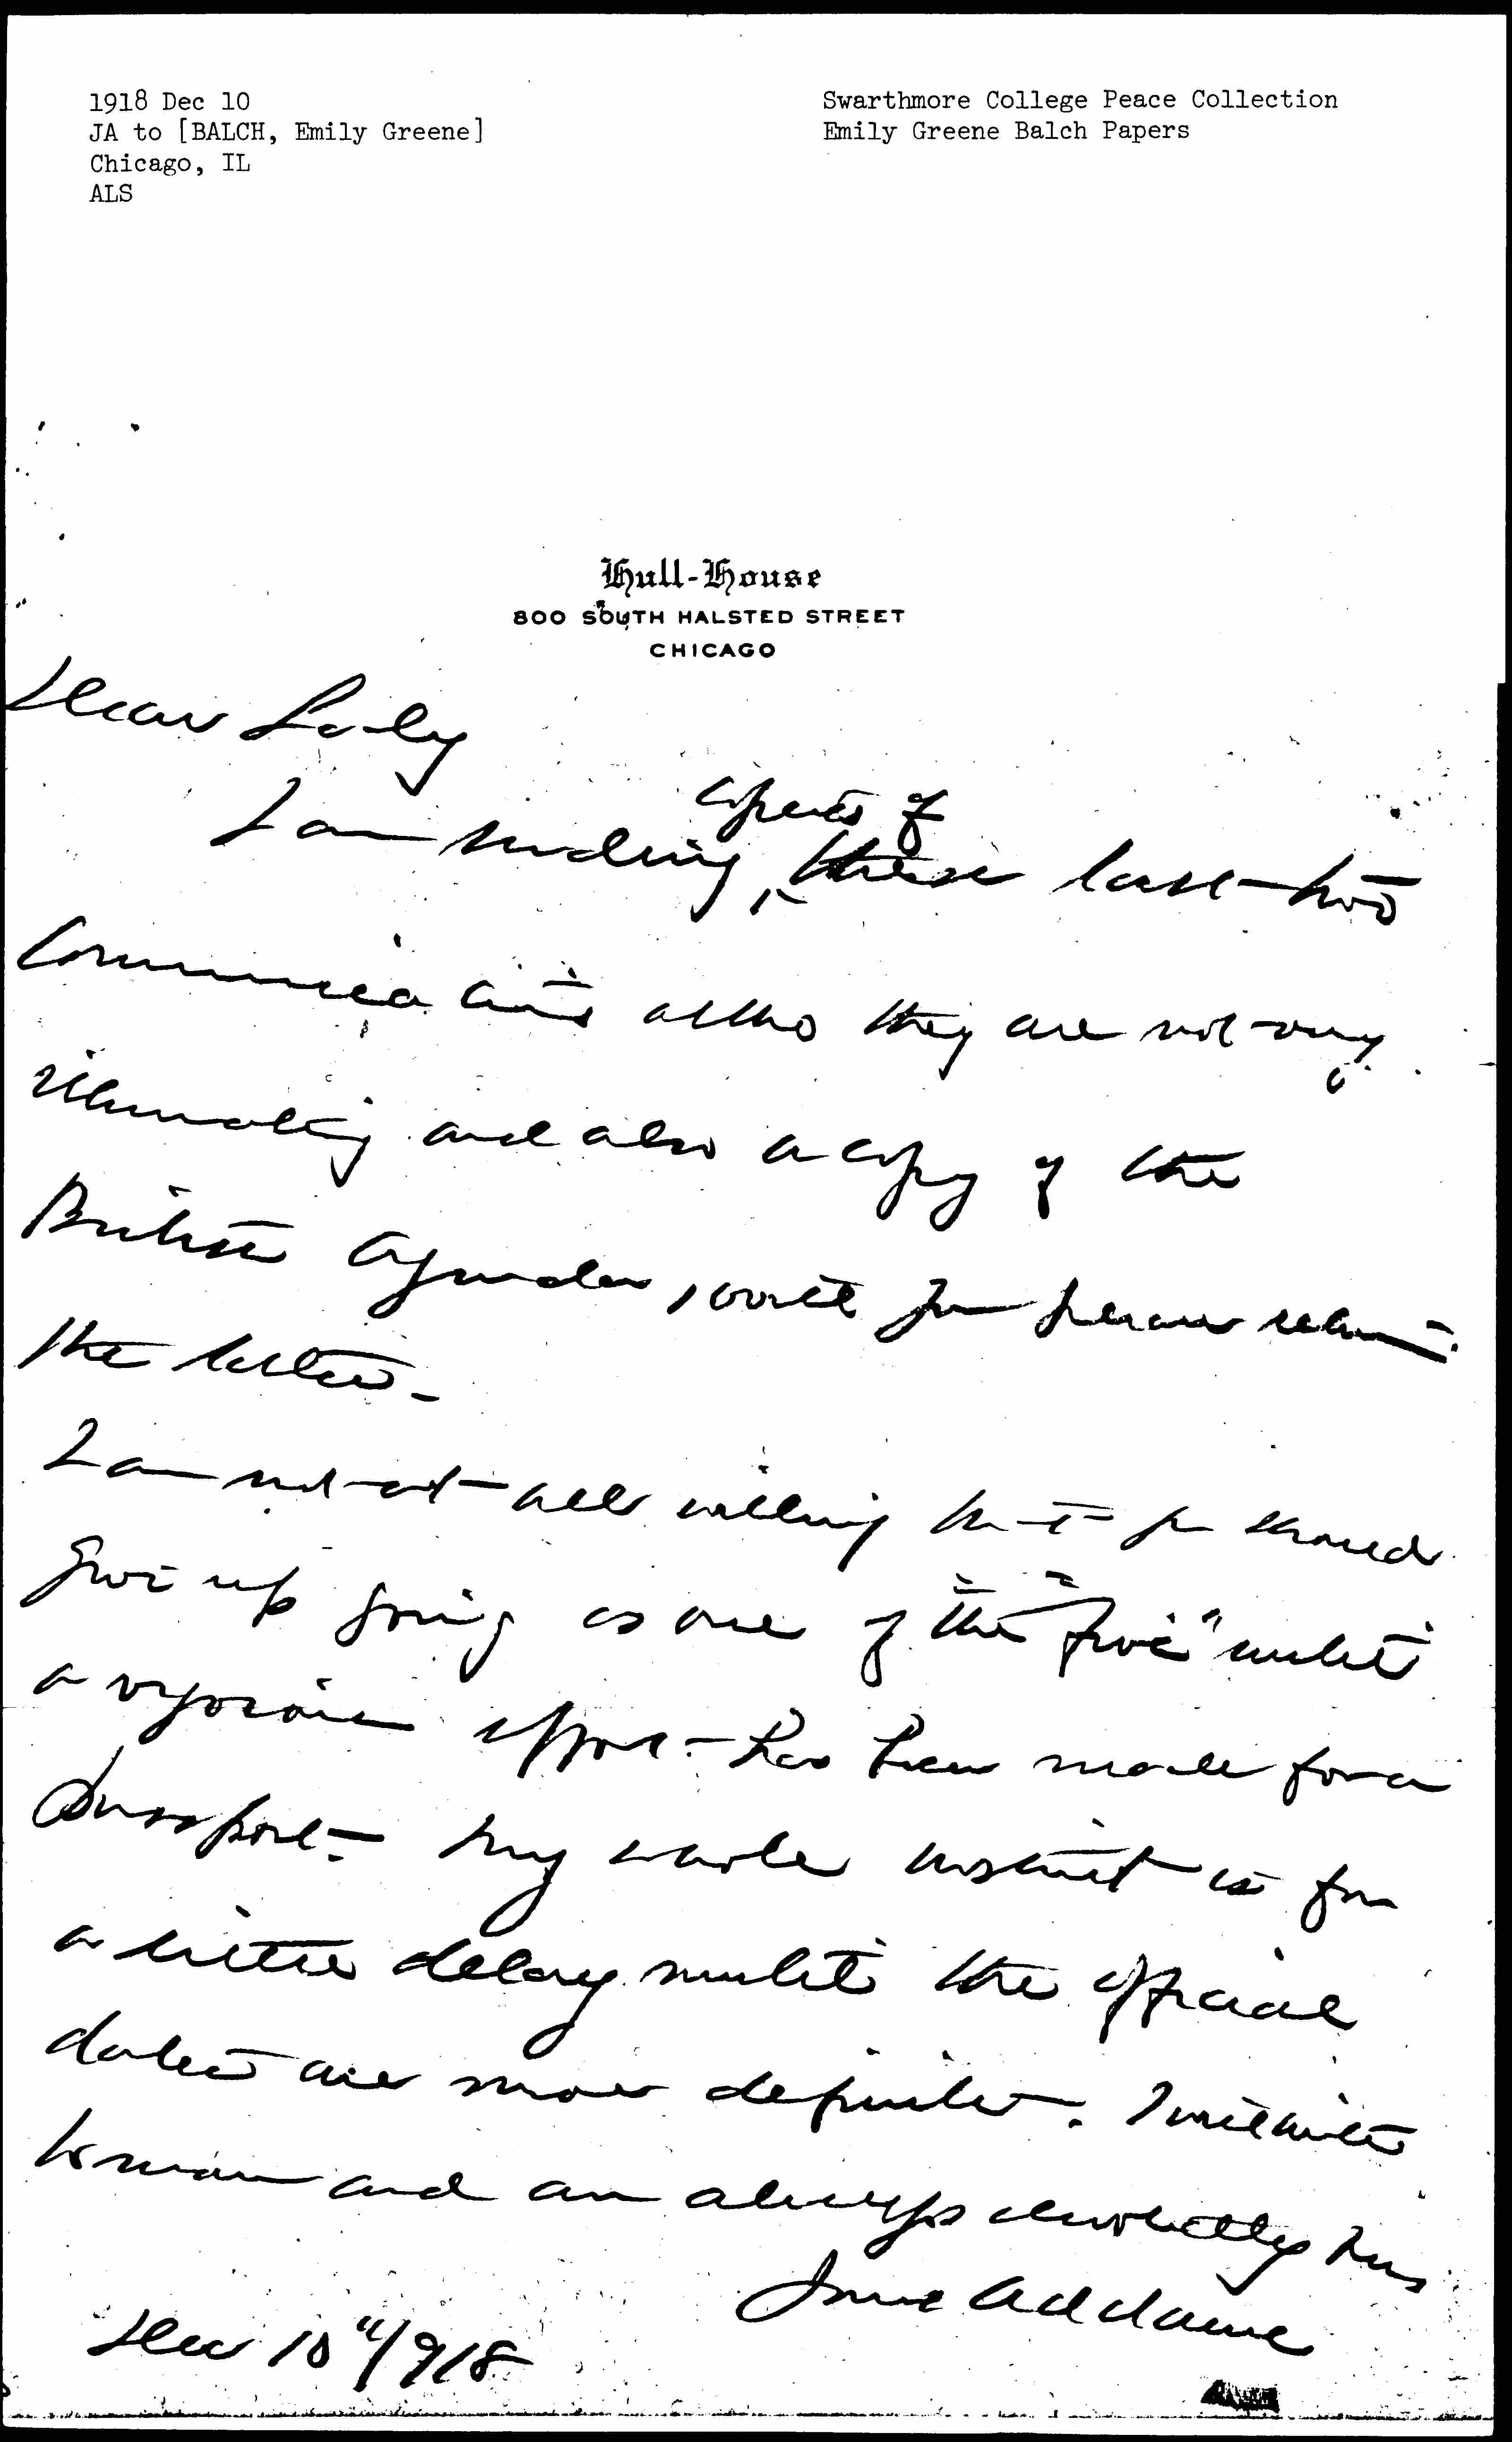 1918 Dec 10
JA to [BALCH, Emily Greene]
Chicago, IL
ALS
Swarthmore College Peace Collection
Emily Greene Balch Papers
Hull-House
800 SOUTH HALSTED STREET
CHICAGO
Dear Lady
copies of
I am sending these last two
communications altho they are not very
illuminating and also a copy of the
British Agenda, will you please return
the latter.
I am not at all willing that you should
give up going as one of the "five" until
a vigorous effort has been made for a
passport. My whole instinct is for
a little delay until the official
dates are more definite. I will write
to
and am always devotedly yours
Jane Addams
Dec 10" 1918